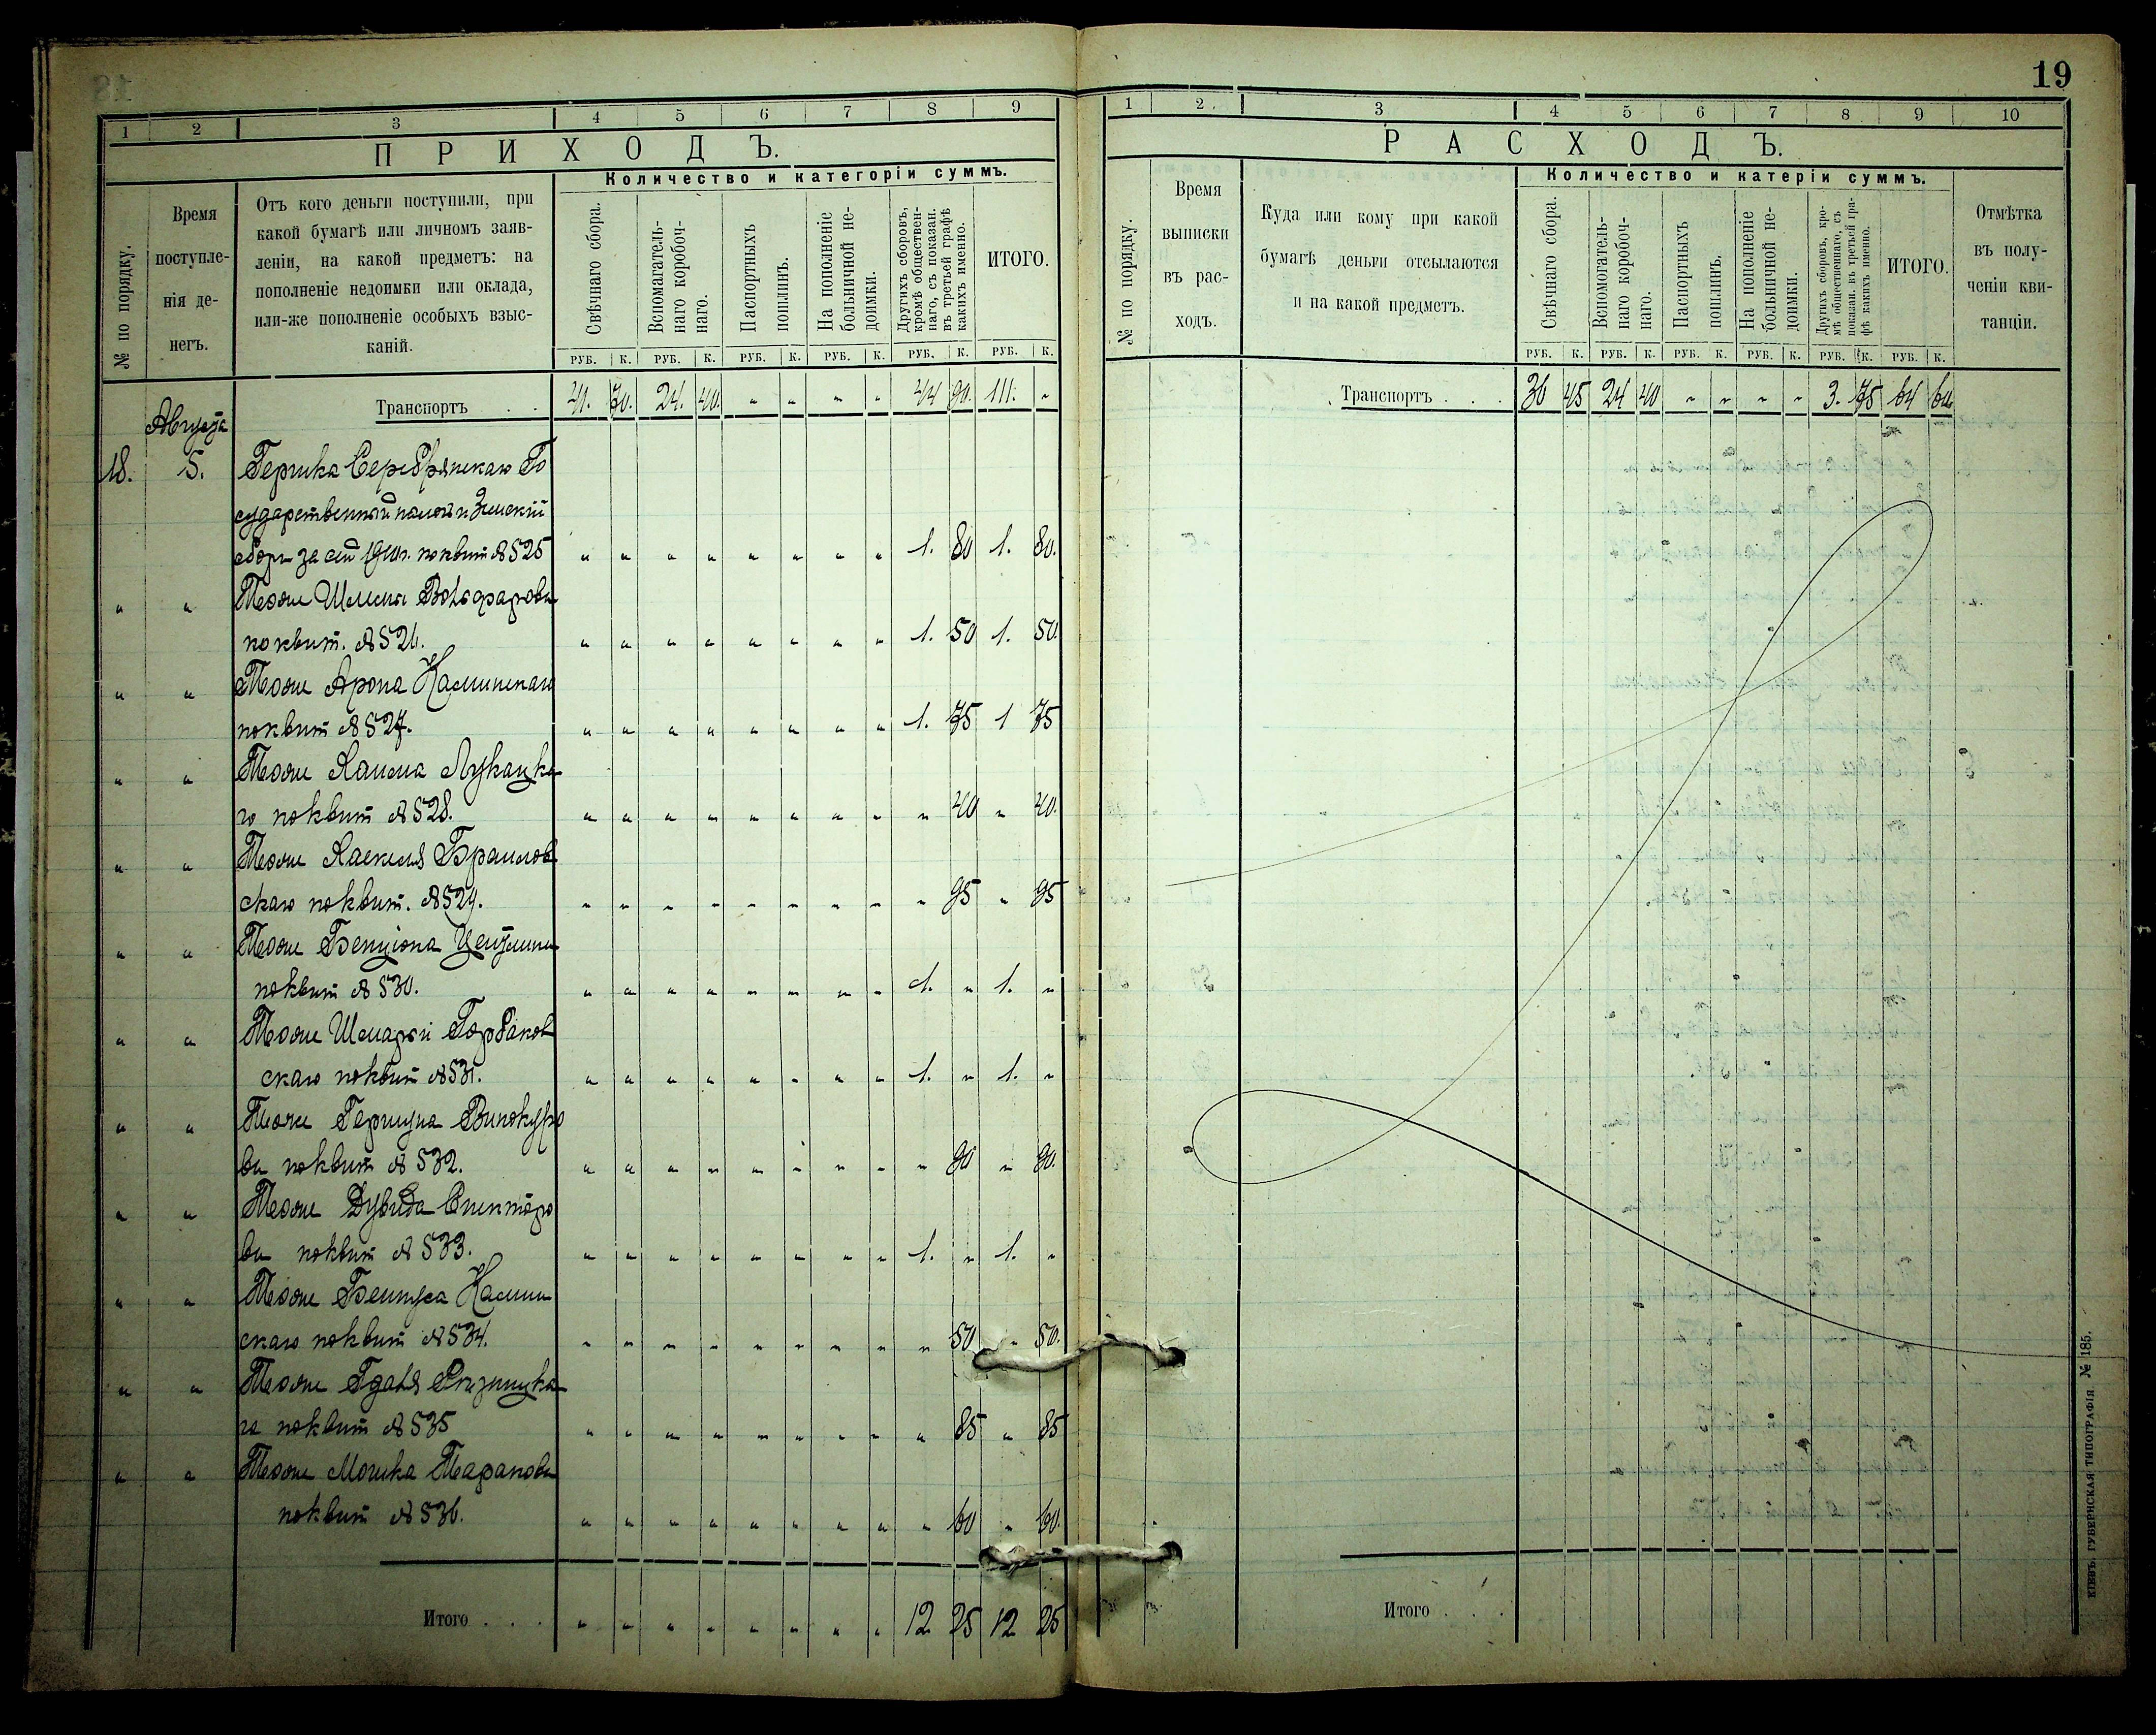 19
1 2 3 4 5 6 7 8 9
ПРИХОДЪ.
№ по порядку.
Время поступле-
нія де-
негъ.
Отъ кого деньги поступили, при
какой бумагѣ или личномъ заяв-
леніи, на какой предметъ: на
пополненіе недоимки или оклада,
или-же пополненіе особыхъ взыс-
каній.
Количество и категоріи суммъ.
Свѣчнаго сбора.
Вспомагатель-
наго коробоч-
наго.
Паспортныхъ
пошлинъ.
На пополненіе
больничной не-
доимки.
Другихъ сборовъ,
кромѣ обществен-
наго, съ показан.
въ третьей графѣ
какихъ именно.
ИТОГО.
РУБ. К. РУБ. К. РУБ. К. РУБ. К. РУБ. К. РУБ. К.
Транспортъ . . 41. 70. 24. 40. " " " " 44 90. 111. "
Августа
18. 5. Гершка Серебрянскаго Го
сударственный налогъ и Земскій
сборъ за 1910 г. по квит № 525 " " " " " " " " 1. 80 1. 80.
" " Тоже
по квит. № 526. " " " " " " " " 1. 50 1. 50.
" " Тоже Арона Каминскаго
по квит № 527. " " " " " " " " 1. 75 1 75
" " Тоже Хаима Лукацка
го по квит № 528. " " " " " " " " " 40 " 40.
" " Тоже Хаскеля Браилов
скаго по квит. № 529. " " " " " " " " " 95 " 95
" " Тоже Бенціона
по квит № 530. " " " " " " " " 1. " 1. "
" " Тоже Шмарьи Горбаков
скаго по квит № 531. " " " " " " " " 1. " 1. "
" " Тоже Гершуна Винокуро
ва по квит № 532. " " " " " " " " " 90 " 90.
" " Тоже Дувида Спекторо
ва по квит № 533. " " " " " " " " 1. " 1. "
" " Тоже Бениуса Камин
скаго по квит № 534. " " " " " " " " " 50 " 50.
" " Тоже Гдаля Резницка
го по квит № 535 " " " " " " " " " 85 " 85
" " Тоже Мошка Таранова
по квит № 536. " " " " " " " " " 60 " 60.
Итого . . . " " " " " " " " 12 25 12 25
1 2 3 4 5 6 7 8 9 10
РАСХОДЪ.
№ по порядку.
Время
выписки
въ рас-
ходъ.
Куда или кому при какой
бумагѣ деньги отсылаются
и на какой предметъ.
Количество и катеріи суммъ.
Свѣчнаго сбора.
Вспомогатель-
наго коробоч-
наго.
Паспортныхъ
пошлинъ.
На пополненіе
больничной не-
доимки.
Другихъ сборовъ, кро-
мѣ общественнаго, съ
показан. въ третьей гра-
фѣ какихъ именно.
ИТОГО.
Отмѣтка
въ полу-
ченіи кви-
танціи.
РУБ. К. РУБ. К. РУБ. К. РУБ. К. РУБ. К. РУБ. К.
Транспортъ . . . 36 45 24 40 " " " " 3. 75 64 60
Итого . . .
КІЕВЪ. ГУБЕРНСКАЯ ТИПОГРАФІЯ № 185.